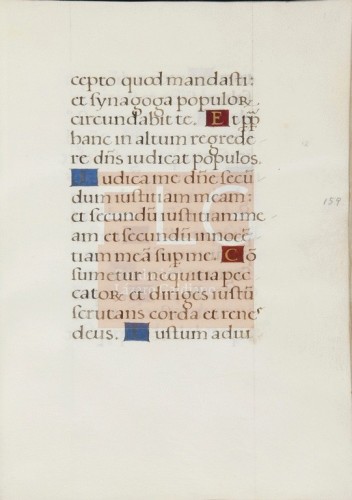 cepto quod mandasti:
et synagoga populoꝝ
circundabit te. Et ꝓp̄
hanc in altum regrede
re dn̄s iudicat populos.
Iudica me dn̄e secū
dum iustitiam meam:
et secundū iustitiam me
am et secundū innocē
tiam meā sup me. Cō
sumetur nequitia pec
catoꝝ et diriges iustū
scrutans corda et renes
deus. Iustum adiu
159